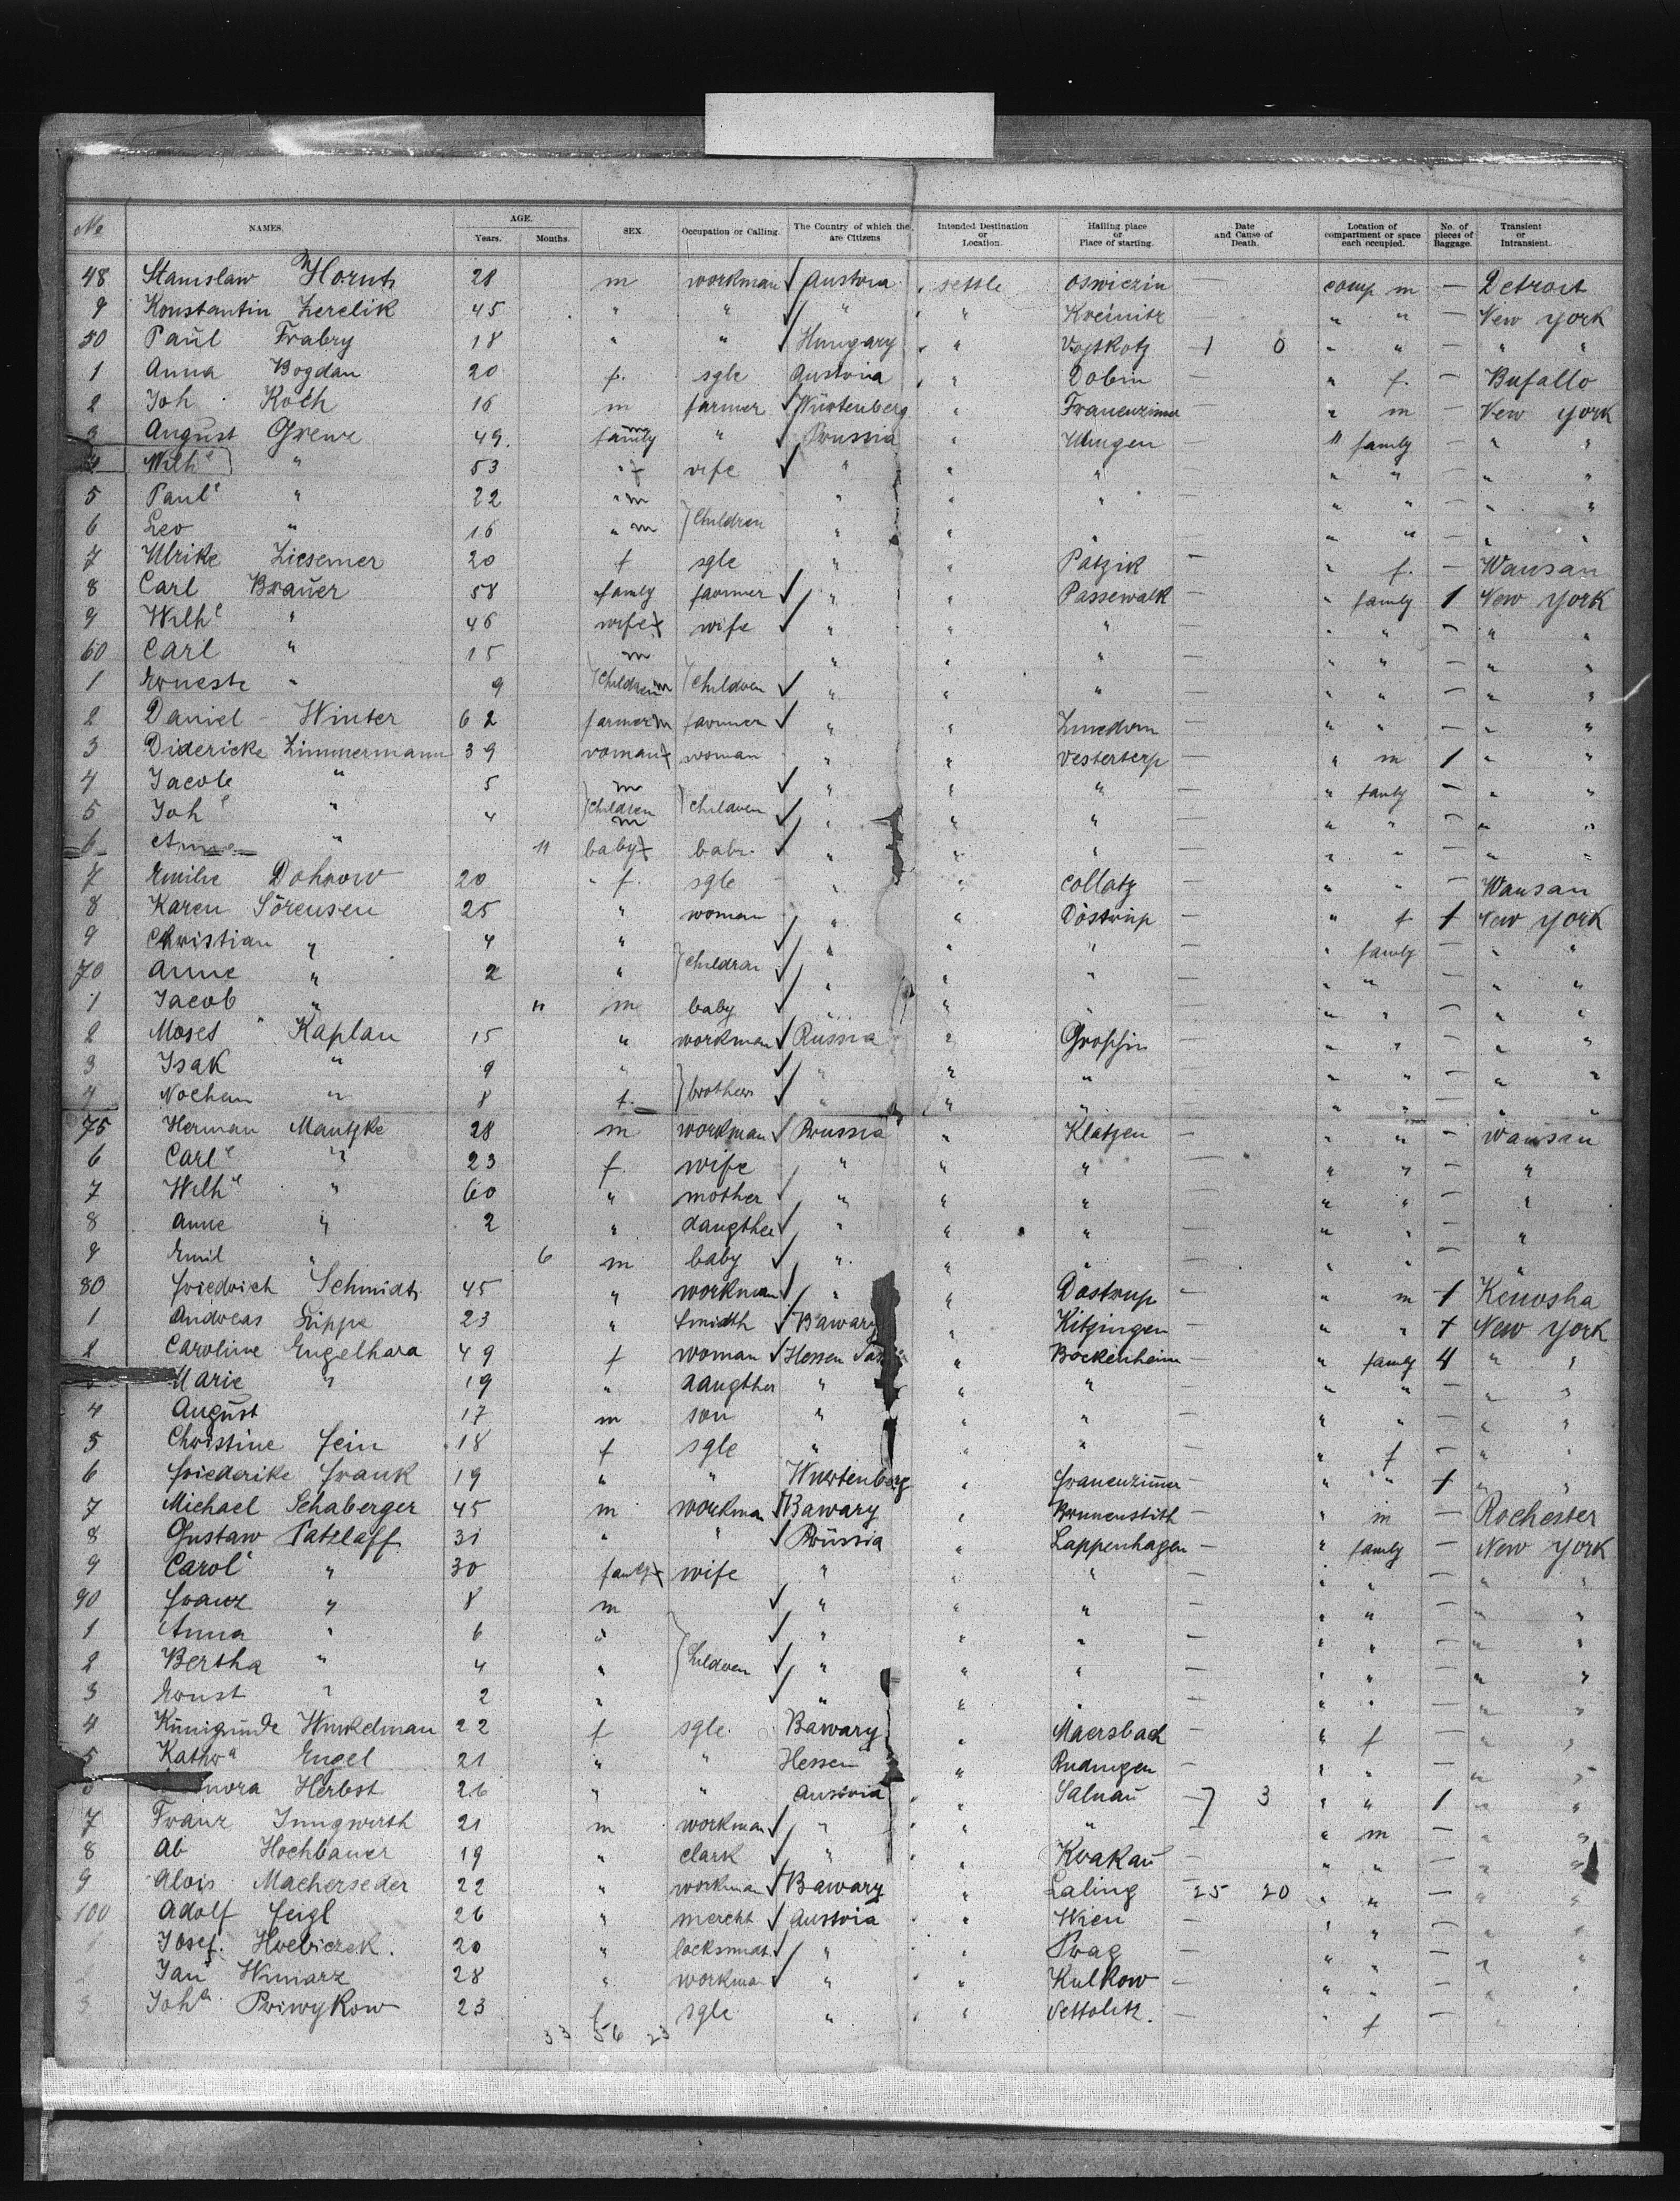 No NAMES. AGE. Years. Months. SEX. Occupation or Calling. The Country of which the are Citizens Intended Destination or Location. Hailing place or Place of starting. Date and Cause of Death. Location of compartment or space each occupied. No. of pieces of Baggage. Transient or Intransient.
48 Stanislaw 28 m workman Austria settle Oswiezin — comp m — Detroit
9 Konstantin Zerelik 45 " " " " — " " — New York
50 Paul Frabry 18 " " Hungary " 1 0 " " — " "
1 Anna Bogdan 20 f. sgle Austria " Dobin — " f. — Bufallo
2 Joh Koch 16 m farmer Würtenberg " — " m — New York
3 August 49 family m " Prussia " — " family — " "
4 Wilhe " 53 " f vife " " " — " " — " "
5 Paule " 22 " m Children " " " — " " — " "
6 Leo " 16 " m " " " — " " — " "
7 Ulrike Ziesemer 20 f sgle " " Patzik — " f. — Wausau
8 Carl Brauer 58 family farmer " " Passewalk — " family 1 New York
9 Wilhe " 46 wife f wife " " " — " " — " "
60 Carl " 15 m children children " " " — " " — " "
1 Ernest " 9 m " " " — " " — " "
2 Daniel Winter 62 farmer m farmer " " — " " — " "
3 Didericke Zimmermann 39 woman f woman " " Vesterterp — " m 1 " "
4 Jacob " 5 m children children " " " — " family — " "
5 Joh " 4 m " " " — " " — " "
6 Anna " 11 baby f baby " " " — " " — " "
7 Emilie Dohrow 20 " f. sgle " " Collatz — " " — Wausau
8 Karen Sörensen 25 " woman " " Döstrup — " f 1 New York
9 Christian " 4 " children " " " — " family — " "
70 Anne " 2 " " " " — " " — " "
1 Jacob " 11 m baby " " " — " " — " "
2 Moses Kaplan 15 " workman Russia " — " " — " "
3 Isak " 9 " brothers " " " — " " — " "
4 " 8 f. " " " — " " — " "
75 Herman Mantzke 28 m workman Prussia " Klatzen — " " — Wausau
6 Carle " 23 f. wife " " " — " " — "
7 Wilhe " 60 " mother " " " — " " — "
8 Anne " 2 " daugther " " " — " " — "
9 Emil " 6 m baby " " " — " " — "
80 Friedrich Schmidt 45 " workman " " Dostrup — " m 1 Kenosha
1 Andreas 23 " Smidth Bawary " Kitzingen — " " 1 New York
2 Caroline Engelhara 49 f woman Hessen " Bockenheim — " family 4 " "
Marie " 19 " daugther " " " — " " — " "
4 August 17 m son " " " — " " — " "
5 Christine Fein 18 f sgle " " " — " f — " "
6 Friederike Frank 19 " " Wuertenberg " Frauenzimer — " " 1 " "
7 Michael Schaberger 45 m workman Bawary " — " m — Rochester
8 Gustaw Patzlaff 31 " " Prüssia " Lappenhagen — " family — New York
9 Carole " 30 family f wife " " " — " " — " "
90 Franz " 8 m " " " — " " — " "
1 Anna " 6 " Children " " " — " " — " "
2 Bertha " 4 " " " " — " " — " "
3 Ernst " 2 " " " " — " " — " "
4 Künigunde Winkelman 22 f sgle. Bawary " Maersbach — " f " "
5 Kathra Engel 21 " " Hessen " — " " " "
Herbst 26 " " Austria " Salnau — 7 3 " " 1 " "
7 Franz Jungwirth 21 m workman " " " " m — " "
8 Ab Hochbauer 19 " clark " " Krakau — " " — " "
9 Alois Macherseder 22 " workman Bawary " Laling 25 20 " " — " "
100 Adolf Feigl 26 " mercht Austria " Wien — " " — " "
1 Josef. 20 " locksmidt " " Prag — " " — " "
Jan 28 " workman " " Kulkow — " " — " "
3 Joha Priwykow 23 f sgle " " Nettolitz. — " f — "
33 56 23